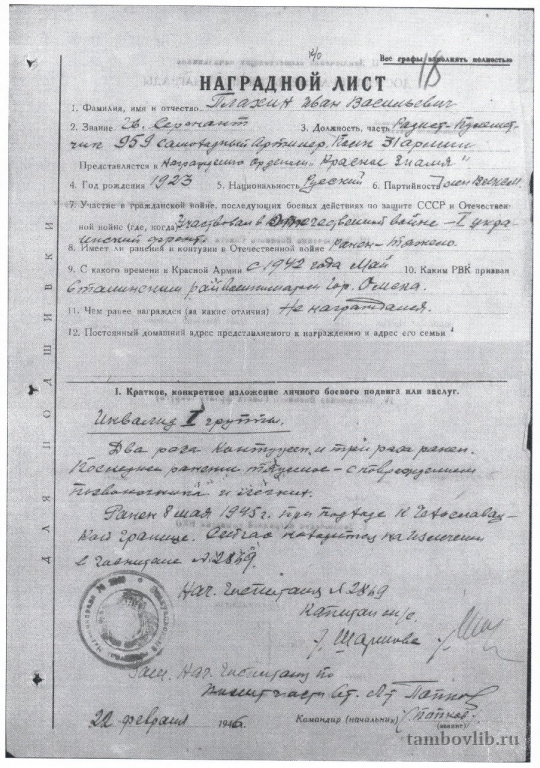 Все графы заполнять полностью
18
НАГРАДНОЙ ЛИСТ
1. Фамилия, имя и отчество Плахин Иван Васильевич
2. Звание Гв. Сержант 3. Должность, часть Развед-Пулемет-
чик 959 самоходный Артилер. Полк 3 Армии
Представляется к Награждению орденом „Красное Знамя"
4. Год рождения 1923 5. Национальность Русский 6. Партийность Член ВЛКСМ
7. Участие в гражданской войне, последующих боевых действиях по защите СССР и Отечествен-
ной войне (где, когда) Участвовал в Отечественной войне – I Укра-
инский фронт
8. Имеет ли ранения и контузии в Отечественной войне Ранен – тяжело
9. С какого времени в Красной Армии с 1942 года Май 10. Каким РВК призван
Сталинским райвоенкоматом гор. Омска
11. Чем ранее награжден (за какие отличия) Не награждался.
12. Постоянный домашний адрес представляемого к награждению и адрес его семьи
ДЛЯ ПОДШИВКИ
I. Краткое, конкретное изложение личного боевого подвига или заслуг.
Инвалид I группы.
Два раза контужен и три раза ранен.
Последнее ранение тяжелое – с повреждением
позвоночника и легких.
Ранен 8 мая 1945 г. при подходе к Чехословац-
кой границе. Сейчас находится на излечении
в госпитале №2869.
Нач. Госпиталя №2869
Капитан м/с
Шаршова
Зам. Нач. Госпиталя по
Полит части Ст. Л-т Папков
22 февраля 1946 г. Командир (начальник)
(звание)
tambovlib.ru